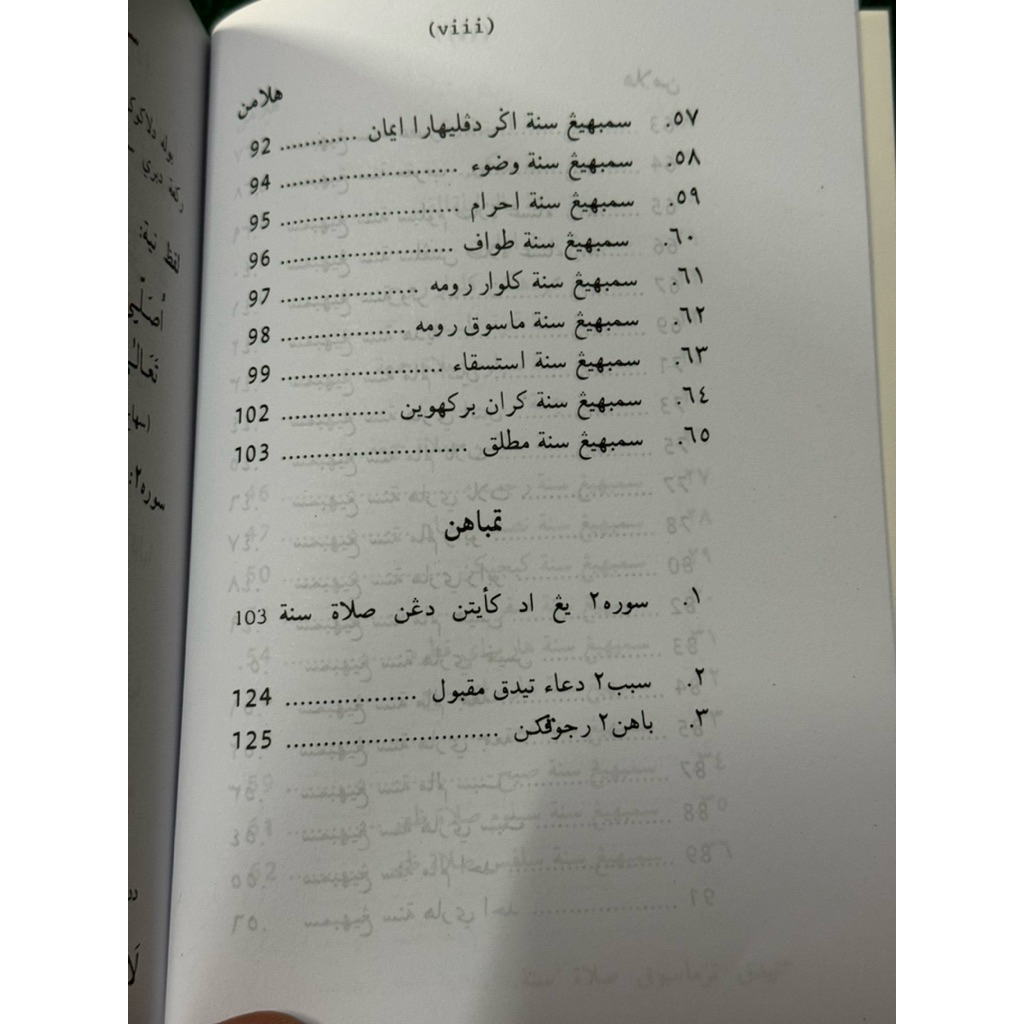 (viii)
هلامن
٥٧. سمبهيڠ سنة اڬر دڤليهارا ايمان ............ 92
٥٨. سمبهيڠ سنة وضوء ........................ 94
٥٩. سمبهيڠ سنة احرام ........................ 95
٦٠. سمبهيڠ سنة طواف ....................... 96
٦١. سمبهيڠ سنة كلوار رومه ................... 97
٦٢. سمبهيڠ سنة ماسوق رومه ................. 98
٦٣. سمبهيڠ سنة استسقاء ...................... 99
٦٤. سمبهيڠ سنة كران بركهوين .............. 102
٦٥. سمبهيڠ سنة مطلق ......................... 103
تمباهن
١. سوره٢ يڠ اد كأيتن دڠن صلاة سنة 103
٢. سبب٢ دعاء تيدق مقبول .................. 124
٣. باهن٢ رجوڤكن ............................. 125
لفظ نية:
سوره٢: